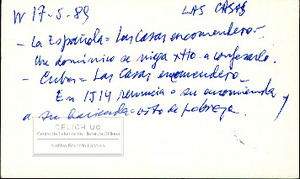 W 17-5-89 LAS CASAS
- La Española = Las Casas encomendero.-
Un dominico se niega xtio a confesarlo.
- Cuba = Las Casas encomendero -
En 1514 renuncia a su encomienda y
a su hacienda = voto de pobreza.
CELICH UC